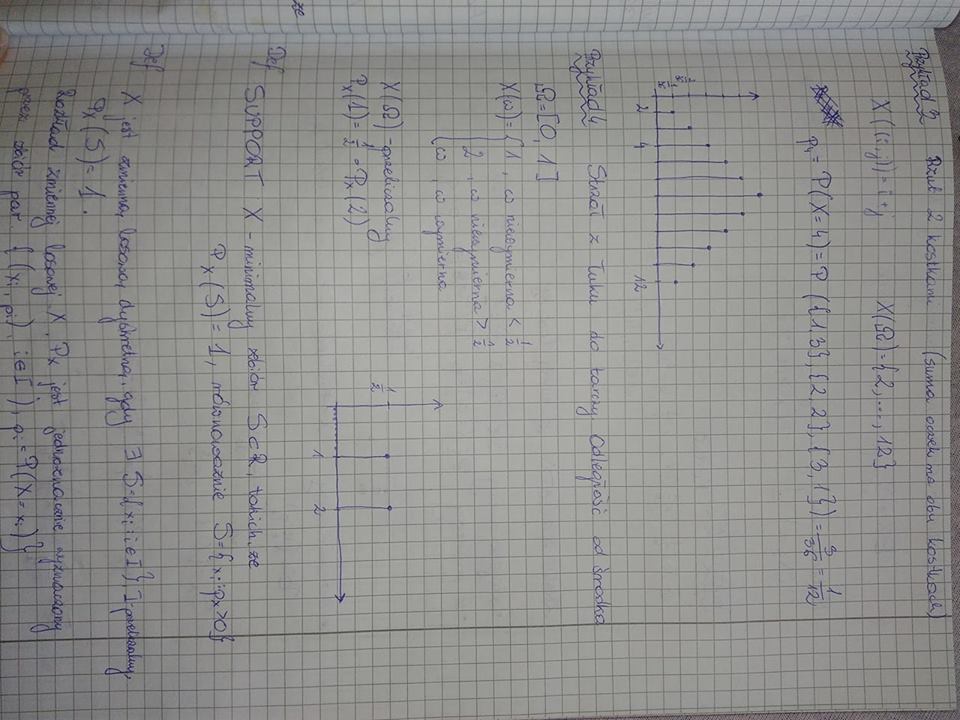 Przykład 3 Rzut 2 kostkami (suma oczek na obu kostkach)
X((i,j)) = i+j X(Ω)={2,...,12}
p₄ = P(X=4) = P({1,3},{2,2},{3,1}) = 3/36 = 1/12
2 4 12
Przykład 4 Strzał z łuku do tarczy. Odległość od środka
Ω=[0,1]
X(ω)= { 1, ω niewymierna < 1/2
2, ω niewymierna > 1/2
ω, ω wymierna
X(Ω) - przeliczalny
Pₓ(1)= 1/2 = Pₓ(2)
1/2
1 2
że
Def
SUPPORT X - minimalny zbiór S⊂R, takich, że
Pₓ(S)=1, równoważnie S={xᵢ: pₓ>0}
Def
X jest zmienną losową dyskretną, gdy ∃ S={xᵢ: i∈I}, I-przeliczalny,
Pₓ(S)=1.
Rozkład zmiennej losowej X, Pₓ jest jednoznacznie wyznaczony
przez zbiór par {(xᵢ, pᵢ), i∈I), pᵢ=P(X=xᵢ)}